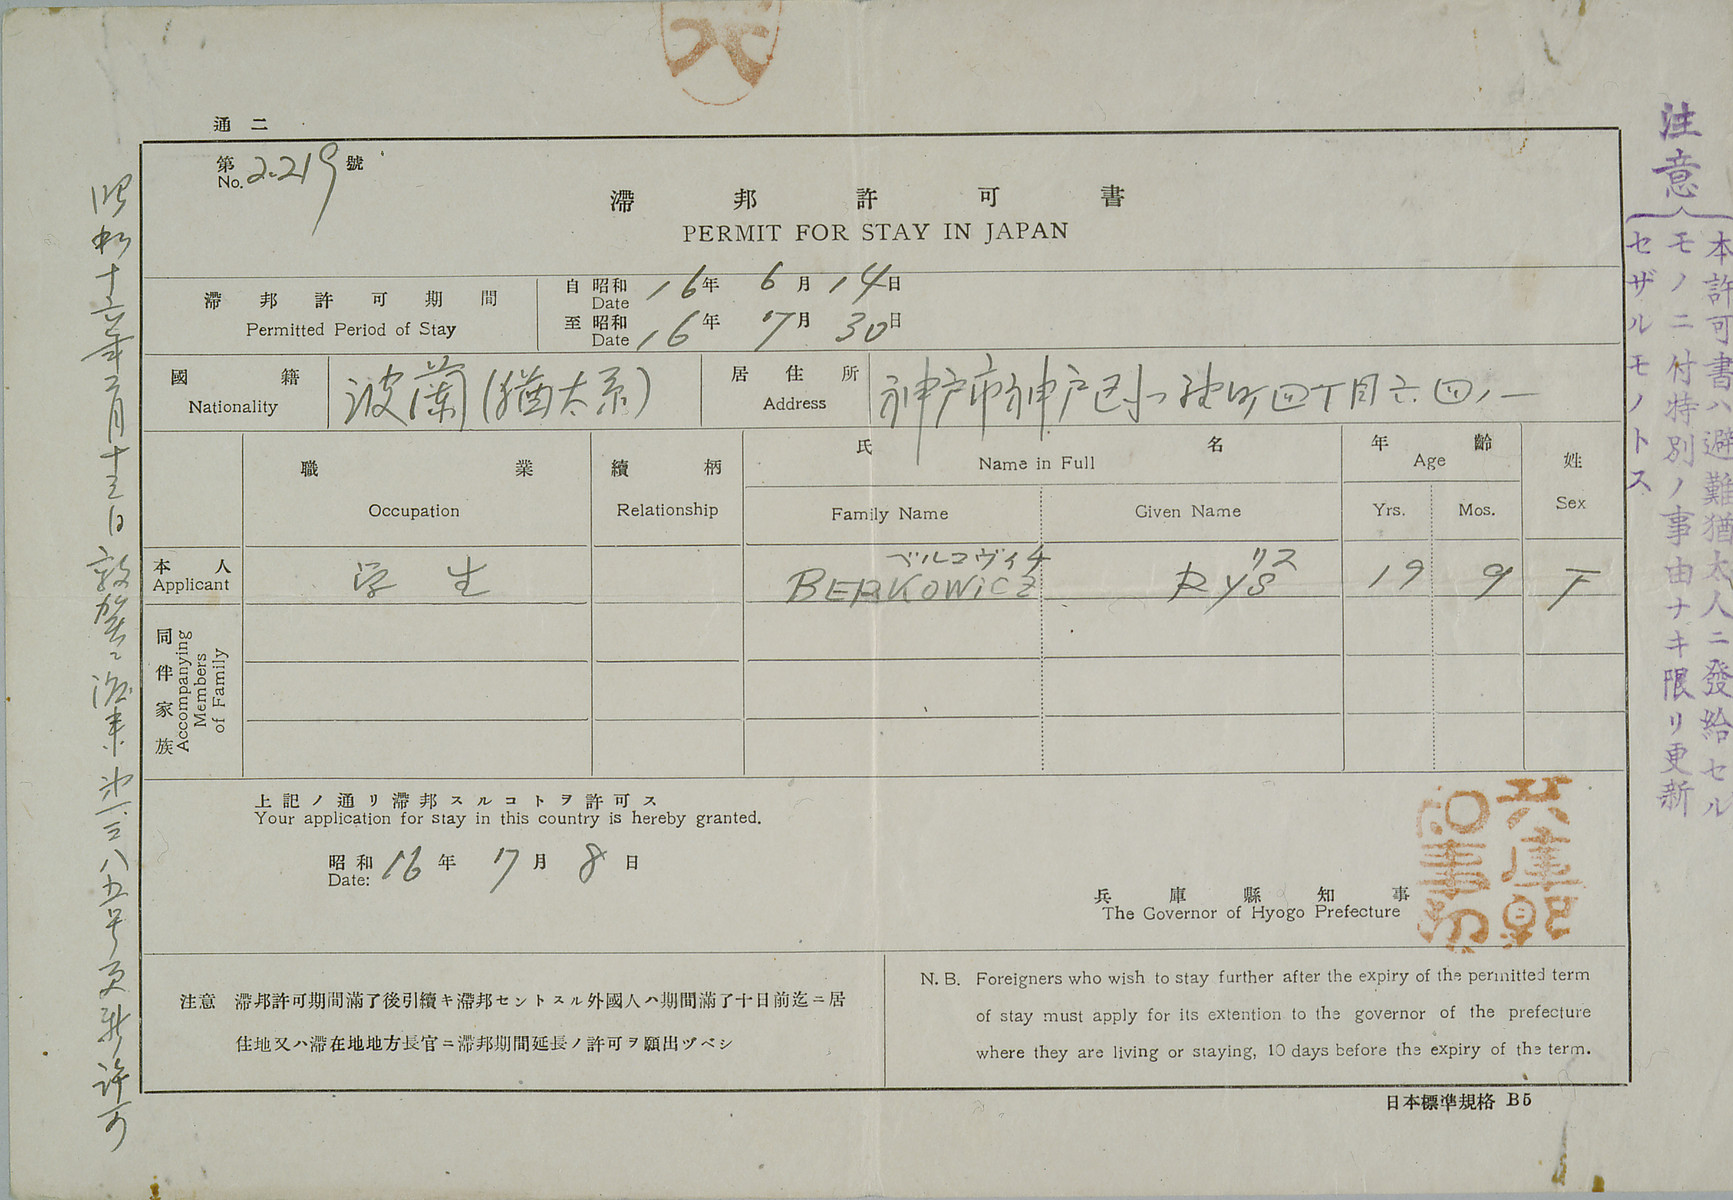 通二
第2.219號
No.
滯邦許可書
PERMIT FOR STAY IN JAPAN
滯邦許可期間
Permitted Period of Stay
自 昭和 16年 6月 14日
Date
至 昭和 16年 7月 30日
Date
國籍
Nationality
波蘭(猶太系)
居住所
Address
神戸市神戸区 町四丁目六四ノ一
職業
Occupation
續柄
Relationship
氏名
Name in Full
Family Name
Given Name
年齡
Age
Yrs.
Mos.
姓
Sex
本人
Applicant
学生
ベルコヴィチ
BERKOWICZ
リス
RYS
19
9
F
同伴家族
Accompanying
Members
of Family
上記ノ通リ滯邦スルコトヲ許可ス
Your application for stay in this country is hereby granted.
昭和 16年 7月 8日
Date:
兵庫縣知事
The Governor of Hyogo Prefecture
注意 滯邦許可期間滿了後引續キ滯邦セントスル外國人ハ期間滿了十日前迄ニ居
住地又ハ滯在地地方長官ニ滯邦期間延長ノ許可ヲ願出ヅベシ
N. B. Foreigners who wish to stay further after the expiry of the permitted term
of stay must apply for its extention to the governor of the prefecture
where they are living or staying, 10 days before the expiry of the term.
日本標準規格 B5
注意
本許可書ハ避難猶太人ニ發給セル
モノニ付特別ノ事由ナキ限リ更新
セザルモノトス
昭和十六年三月十三日敦賀ニ渡来 第一三八五号更新許可